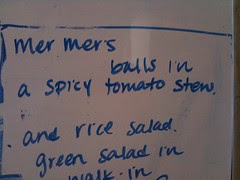 mermers
balls in
a spicy tomato stew.
. and rice salad.
green salad in
walk.in